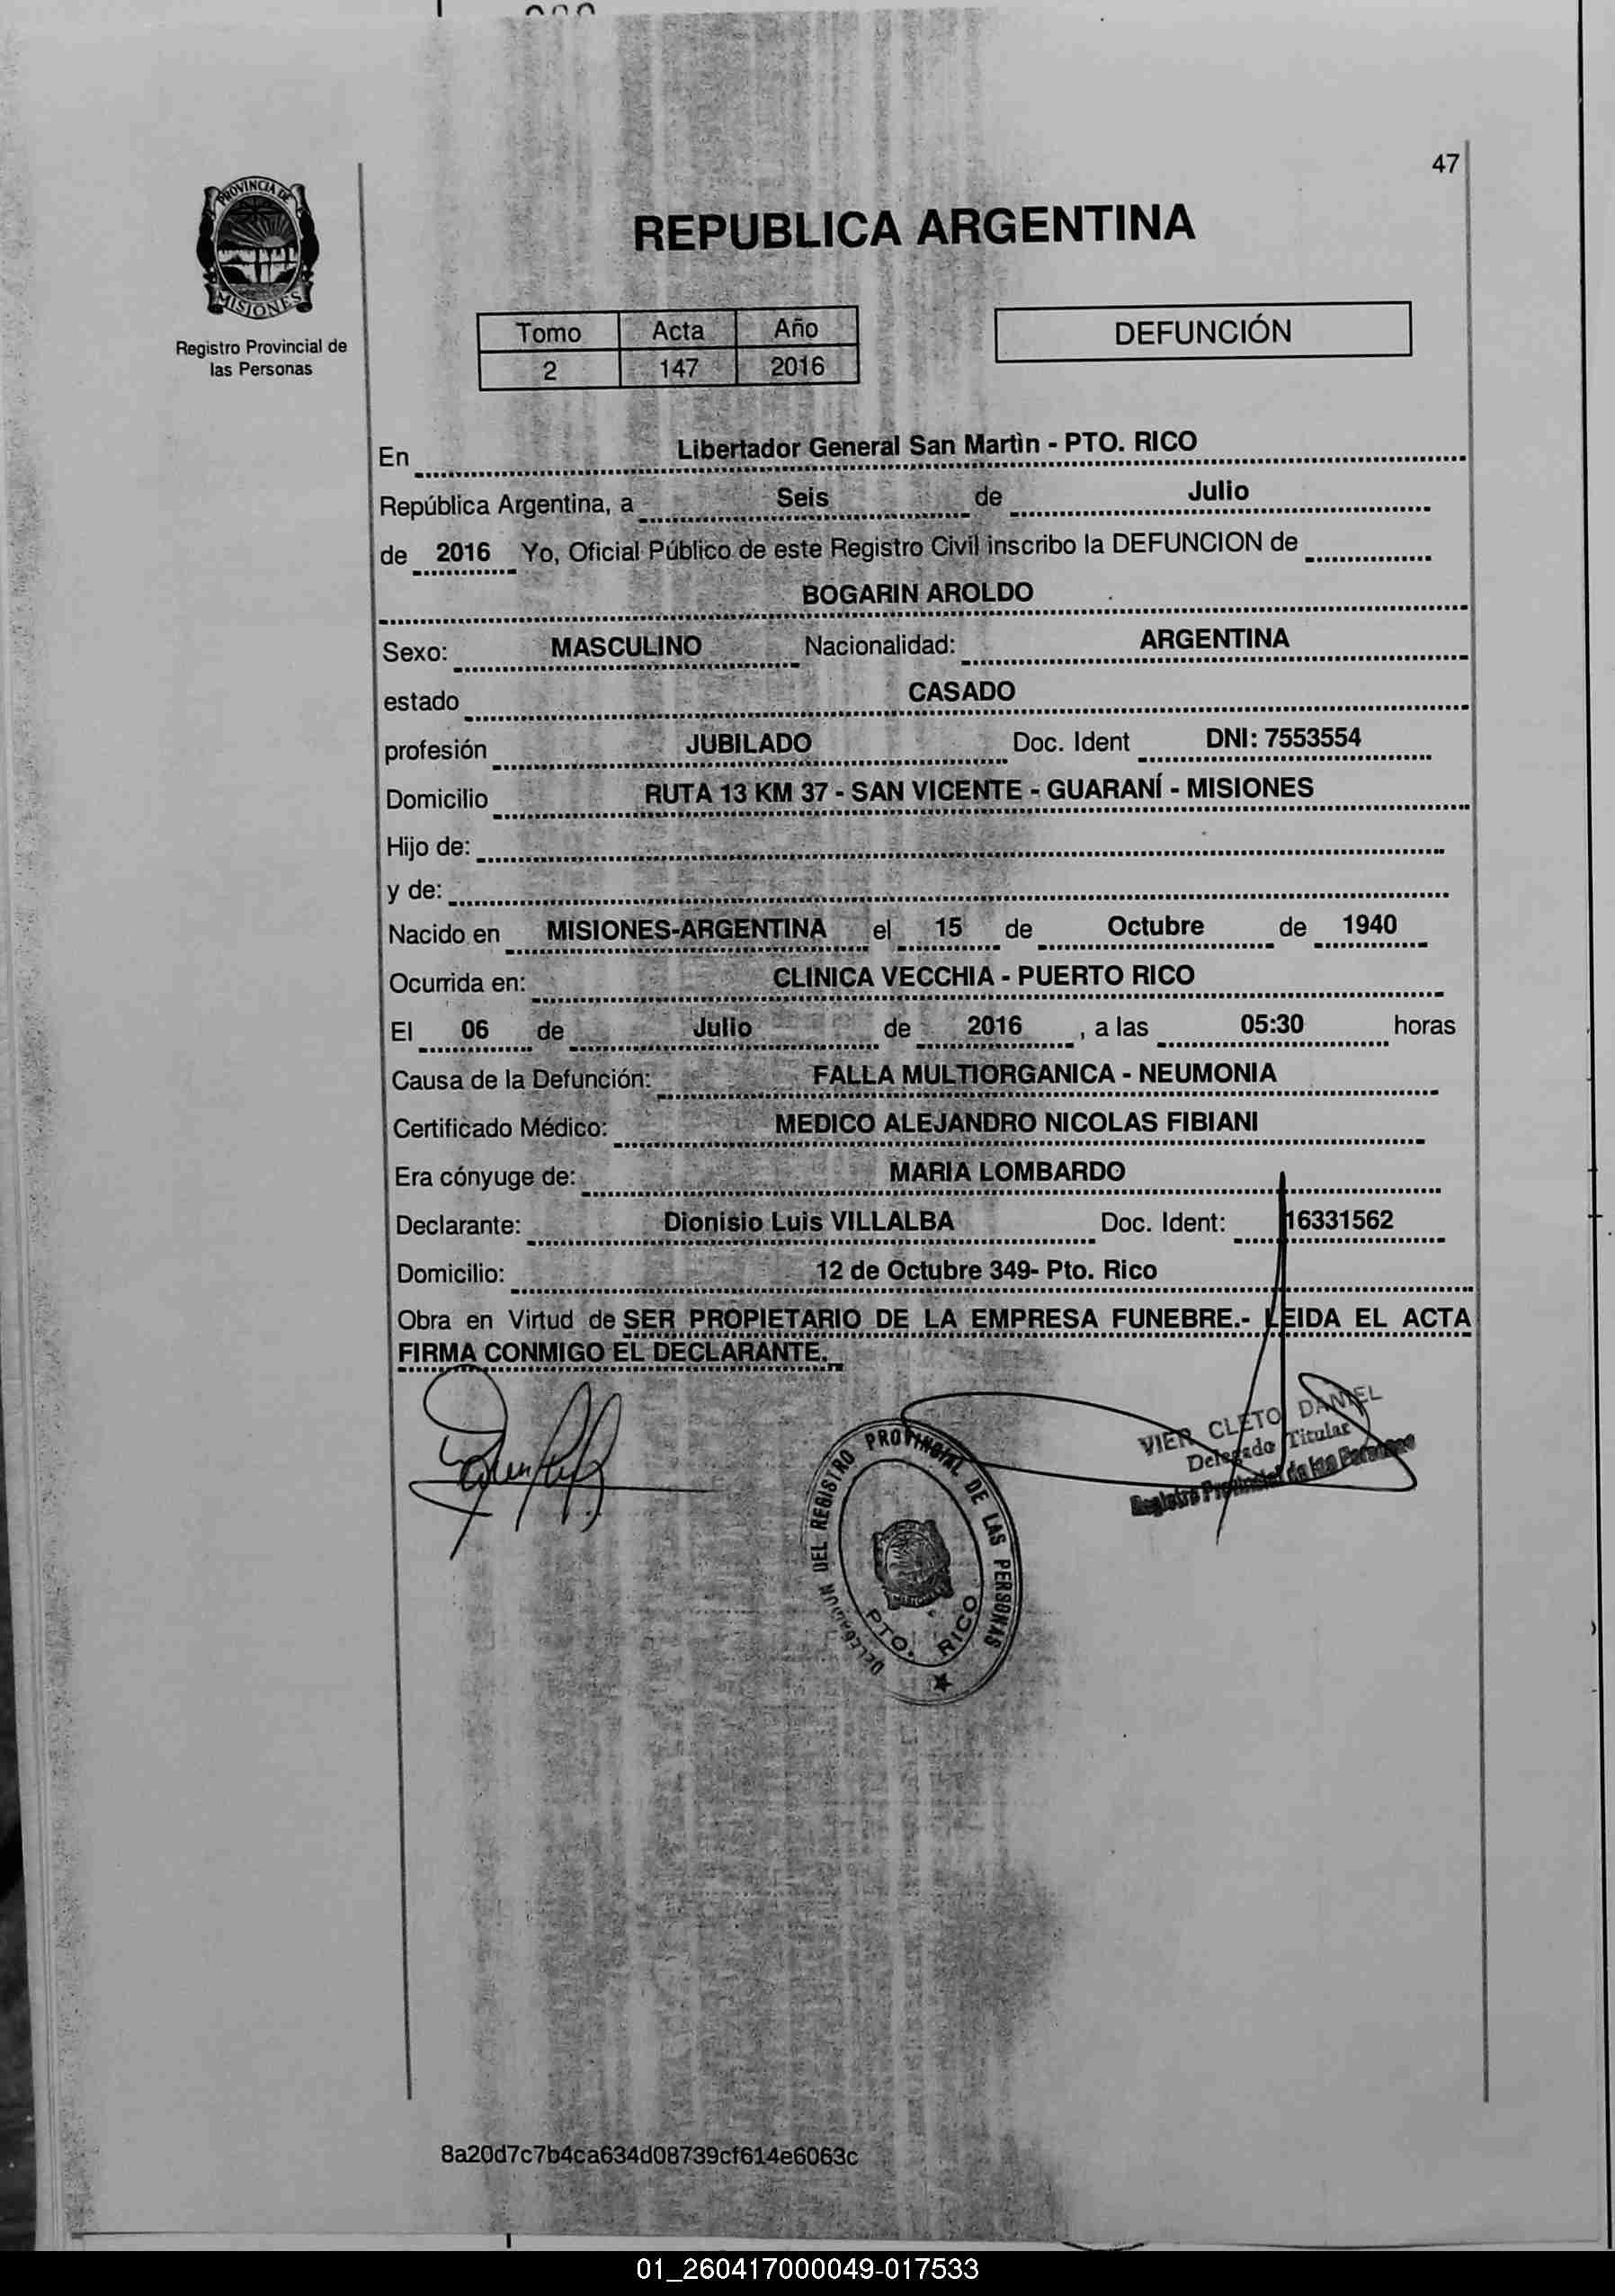 47
PROVINCIA DE
MISIONES
Registro Provincial de
las Personas
REPUBLICA ARGENTINA
Tomo Acta Año
2 147 2016
DEFUNCIÓN
En Libertador General San Martìn - PTO. RICO
República Argentina, a Seis de Julio
de 2016 Yo, Oficial Público de este Registro Civil inscribo la DEFUNCION de
BOGARIN AROLDO
Sexo: MASCULINO Nacionalidad: ARGENTINA
estado CASADO
profesión JUBILADO Doc. Ident DNI: 7553554
Domicilio RUTA 13 KM 37 - SAN VICENTE - GUARANÍ - MISIONES
Hijo de:
y de:
Nacido en MISIONES-ARGENTINA el 15 de Octubre de 1940
Ocurrida en: CLINICA VECCHIA - PUERTO RICO
El 06 de Julio de 2016 , a las 05:30 horas
Causa de la Defunción: FALLA MULTIORGANICA - NEUMONIA
Certificado Médico: MEDICO ALEJANDRO NICOLAS FIBIANI
Era cónyuge de: MARIA LOMBARDO
Declarante: Dionisio Luis VILLALBA Doc. Ident: 16331562
Domicilio: 12 de Octubre 349- Pto. Rico
Obra en Virtud de SER PROPIETARIO DE LA EMPRESA FUNEBRE.- LEIDA EL ACTA
FIRMA CONMIGO EL DECLARANTE.
VIER CLETO DANIEL
Delegado Titular
Registro Provincial de las Personas
DELEGACION DEL REGISTRO PROVINCIAL DE LAS PERSONAS
PTO. RICO
8a20d7c7b4ca634d08739cf614e6063c
01_260417000049-017533